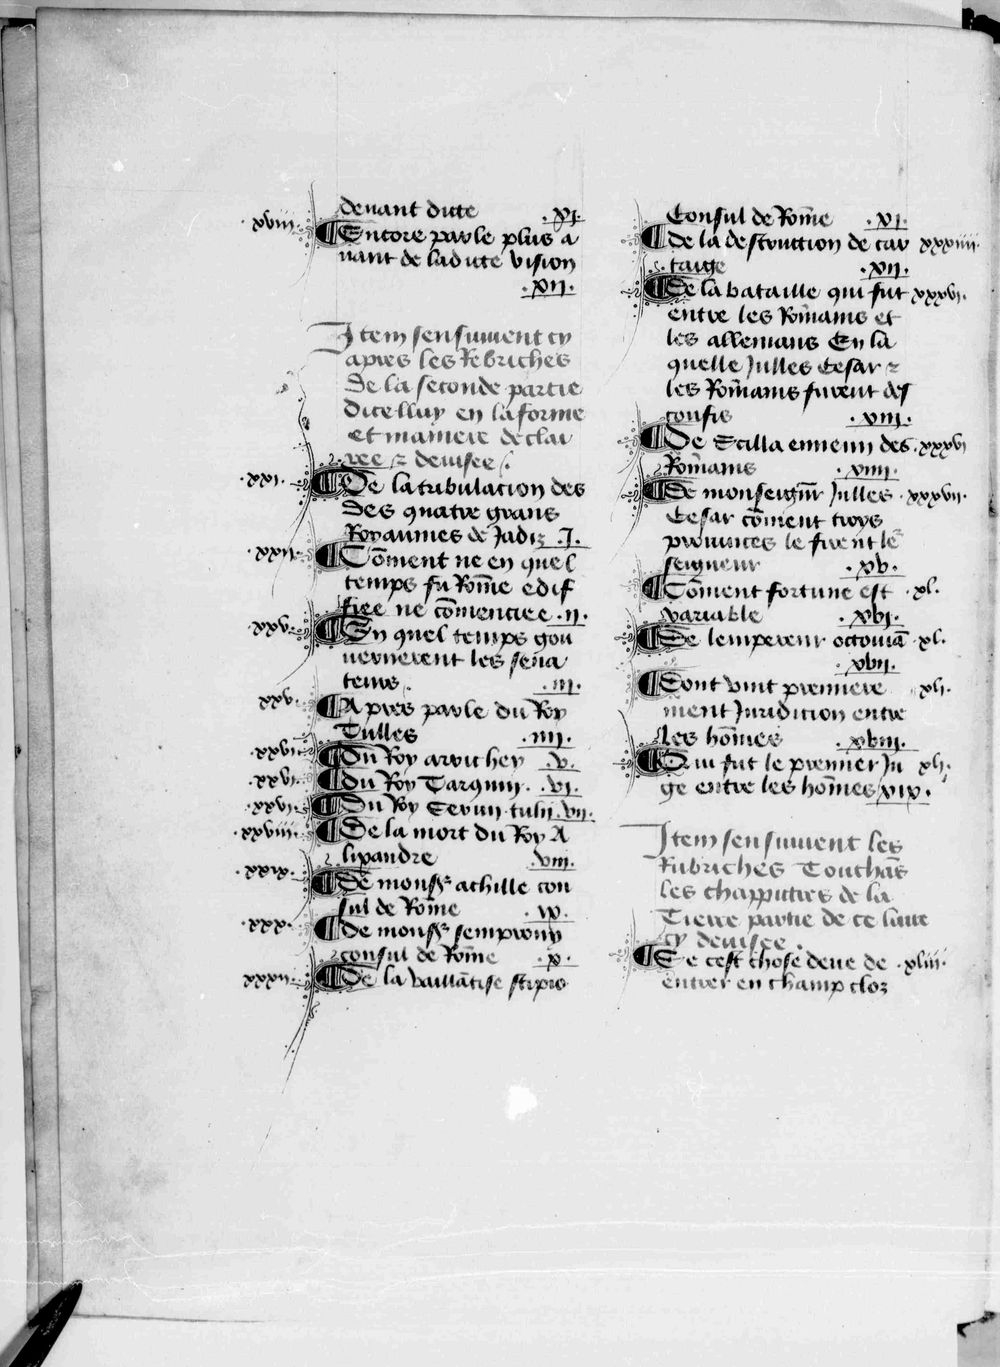 deuant dicte .xi.
.xviii. Encore parle plus a
uant de ladicte vision
.xii.
Item sensuiuent cy
apres les Rebriches
de la seconde partie
dicelluy en la forme
et maniere declai
ree ⁊ deuisee
.xxi. De la tribulacion des
des quatre grans
Royaumes de Jadiz .I.
.xxii. Cõment ne en quel
temps fu Rõme edif
fiee ne cõmenciee .ii.
.xxv. En quel temps gou
uernerent les sena
teurs .iii.
.xxv. Apres parle du Roy
Tulles .iiii.
.xxvi. Du Roy aruchey .v.
.xxvi. Du Roy Tarquin .vi.
.xxvi. Du Roy Seruii tulii .vii.
.xxviii. De la mort du Roy A
lixandre .viii.
.xxix. De monsr achille con
sul de Rõme .ix.
.xxx. De monsr semprony
consul de Rõme .x.
.xxxii. De la vaillãtise scipio
Consul de Rõme .xi.
De la destruction de car xxxiiii.
taige .xii.
De la bataille qui fut xxxvi.
entre les Rõmains et
les allemans En la
quelle Julles Cesar ⁊
les Rõmains furent des
confis .xiii.
De Scilla ennemi des .xxxvi
Rõmains .xiiii.
De monseignr Julles .xxxvii.
Cesar cõment troys
prouinces le firent le
seigneur .xv.
Cõment fortune est .xl.
variable .xvi.
De lempereur octouiã .xl.
.xvii.
Dont vint premiere .xli.
ment Juridicion entre
les hõmes .xviii.
Qui fut le premier Ju .xli.
ge entre les hõmes .xix.
Item sensuiuent les
Rubriches Touchãs
les chappitres de la
Tierce partie de ce liure
cy deuisee .
Se cest chose deue de .xliii.
entrer en champ cloz